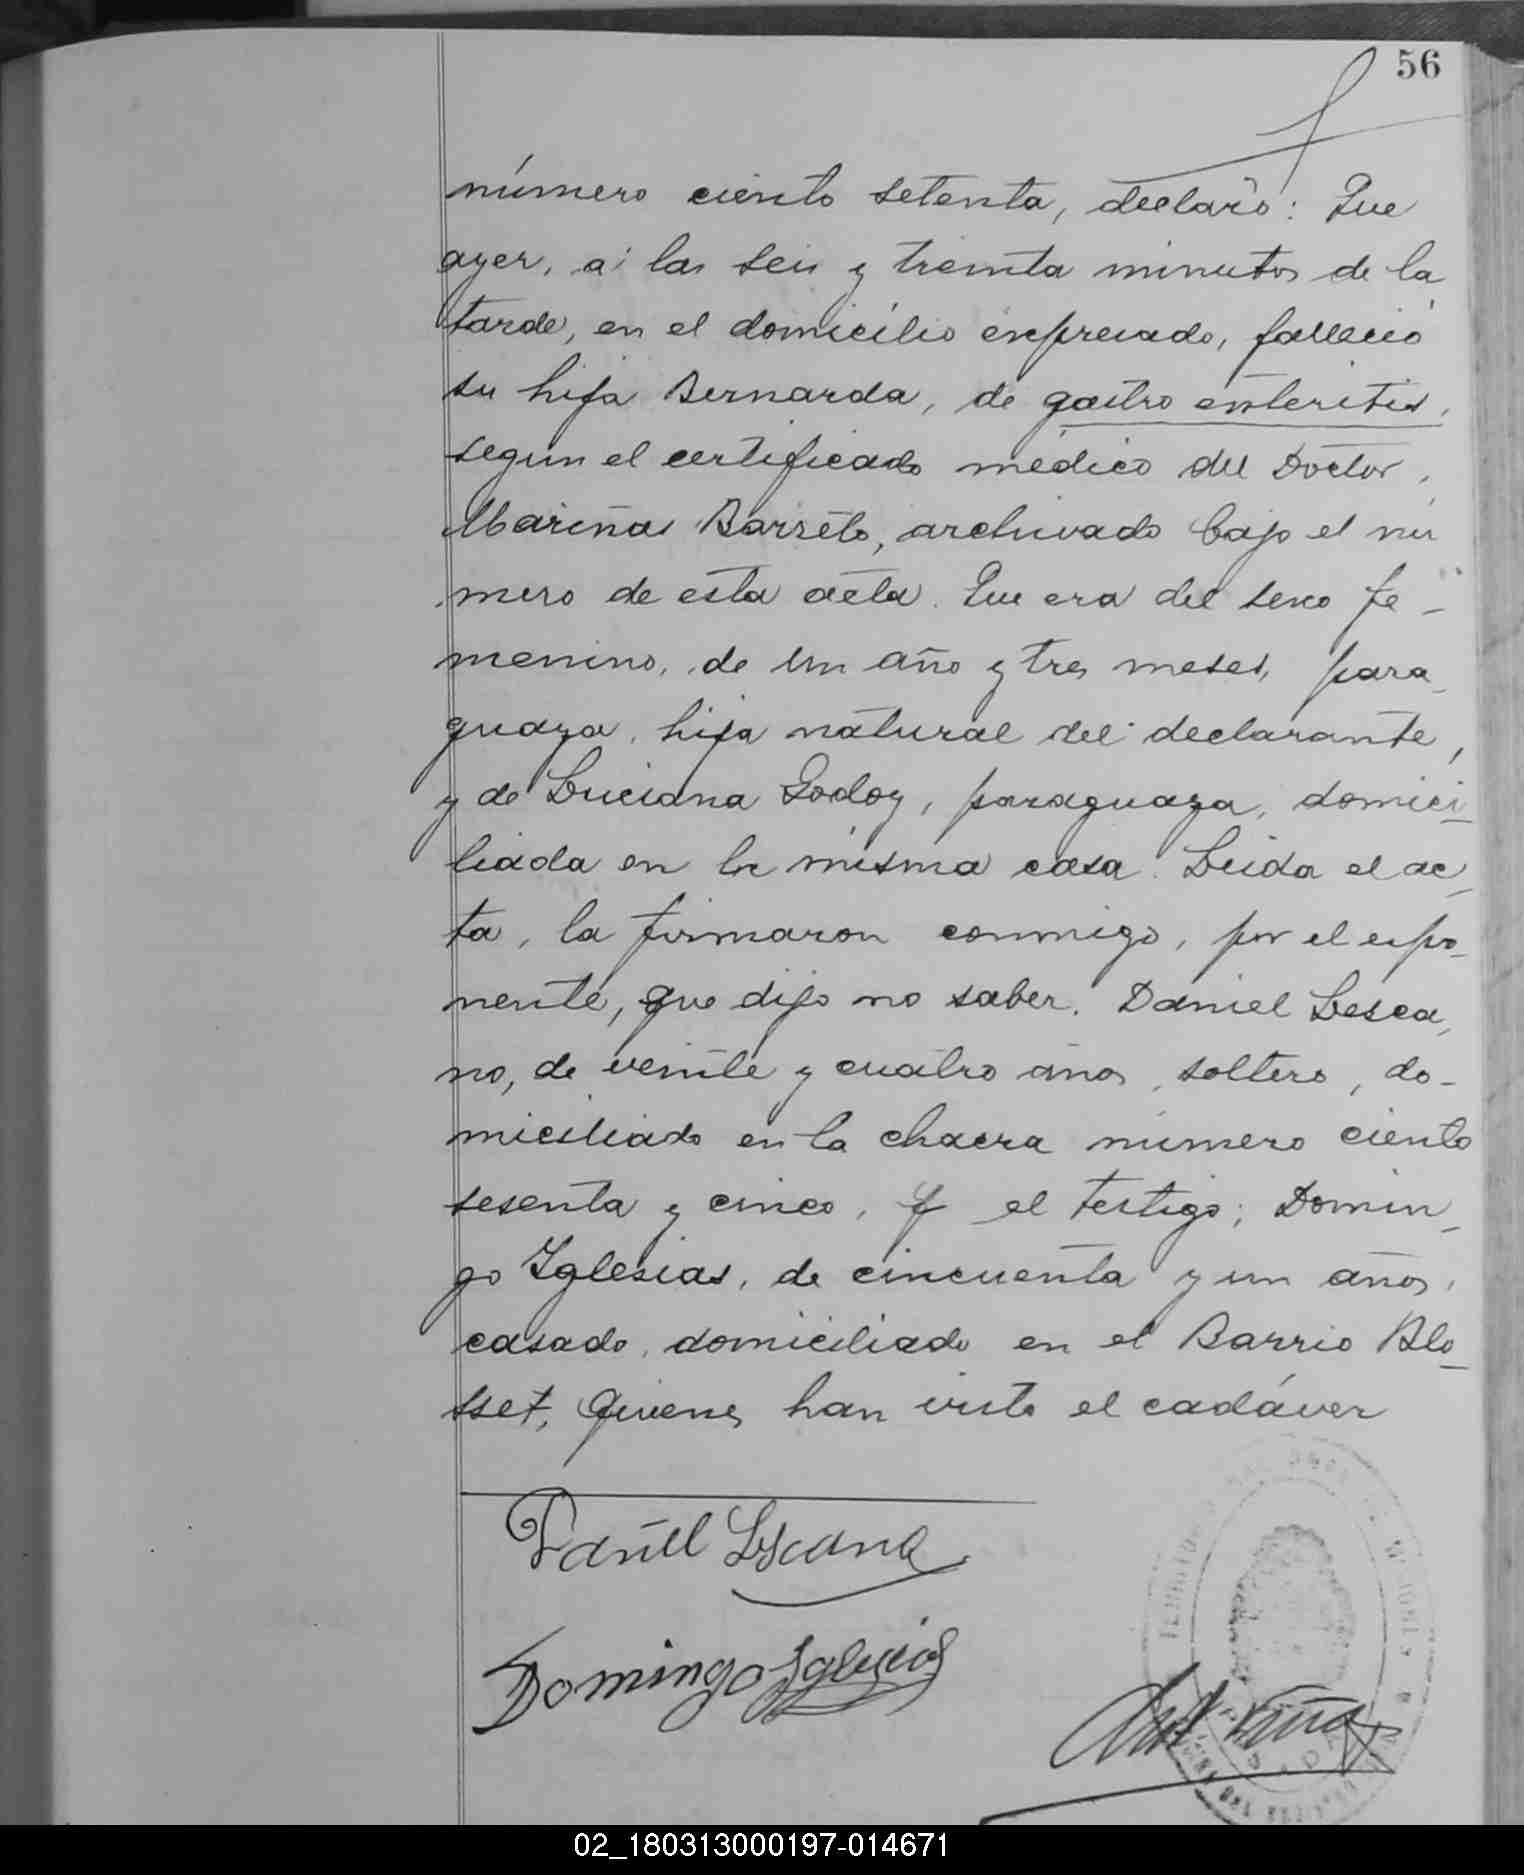 56
número ciento setenta, declaró: Que
ayer, a las seis y treinta minutos de la
tarde, en el domicilio expresado, falleció
su hija Bernarda, de gastro enteritis,
segun el certificado médico del Doctor
Mariñas Barreto, archivado bajo el nú
mero de esta acta. Que era del sexo fe-
menino, de un año y tres meses, para_
guaya, hija natural del declarante,
y de Luciana Godoy, paraguaya, domici_
liada en la misma casa. Leida el ac_
ta, la firmaron conmigo, por el expo_
nente, que dijo no saber, Daniel Lesca_
no, de veinte y cuatro años, soltero, do-
miciliado en la chacra número ciento
sesenta y cinco, y el testigo; Domin_
go Iglesias, de cincuenta y un años,
casado, domiciliado en el Barrio Blo_
sset, quienes han visto el cadáver
Daniel Lescano
Domingo Iglesias
02_180313000197-014671